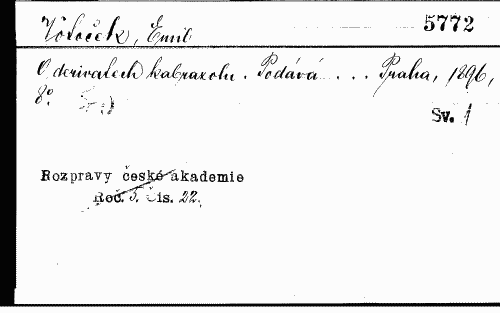 Votoček, Emil 5772
O derivatech kabrazolu. Podává . . . Praha, 1896,
8º.
Sv. 1
Rozpravy české akademie
Roč. 5. Čis. 22.